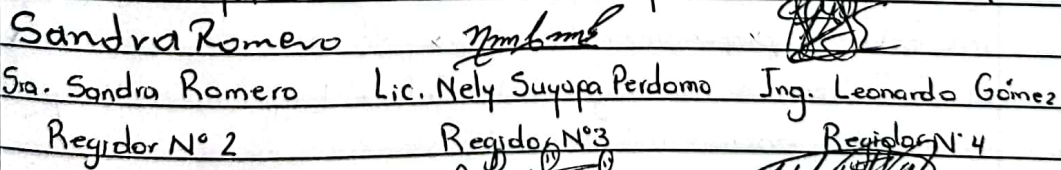 Sandra Romero
Sra. Sandra Romero Lic. Nely Suyapa Perdomo Ing. Leonardo Gómez
Regidor Nº 2 Regidor Nº3 Regidor Nº 4